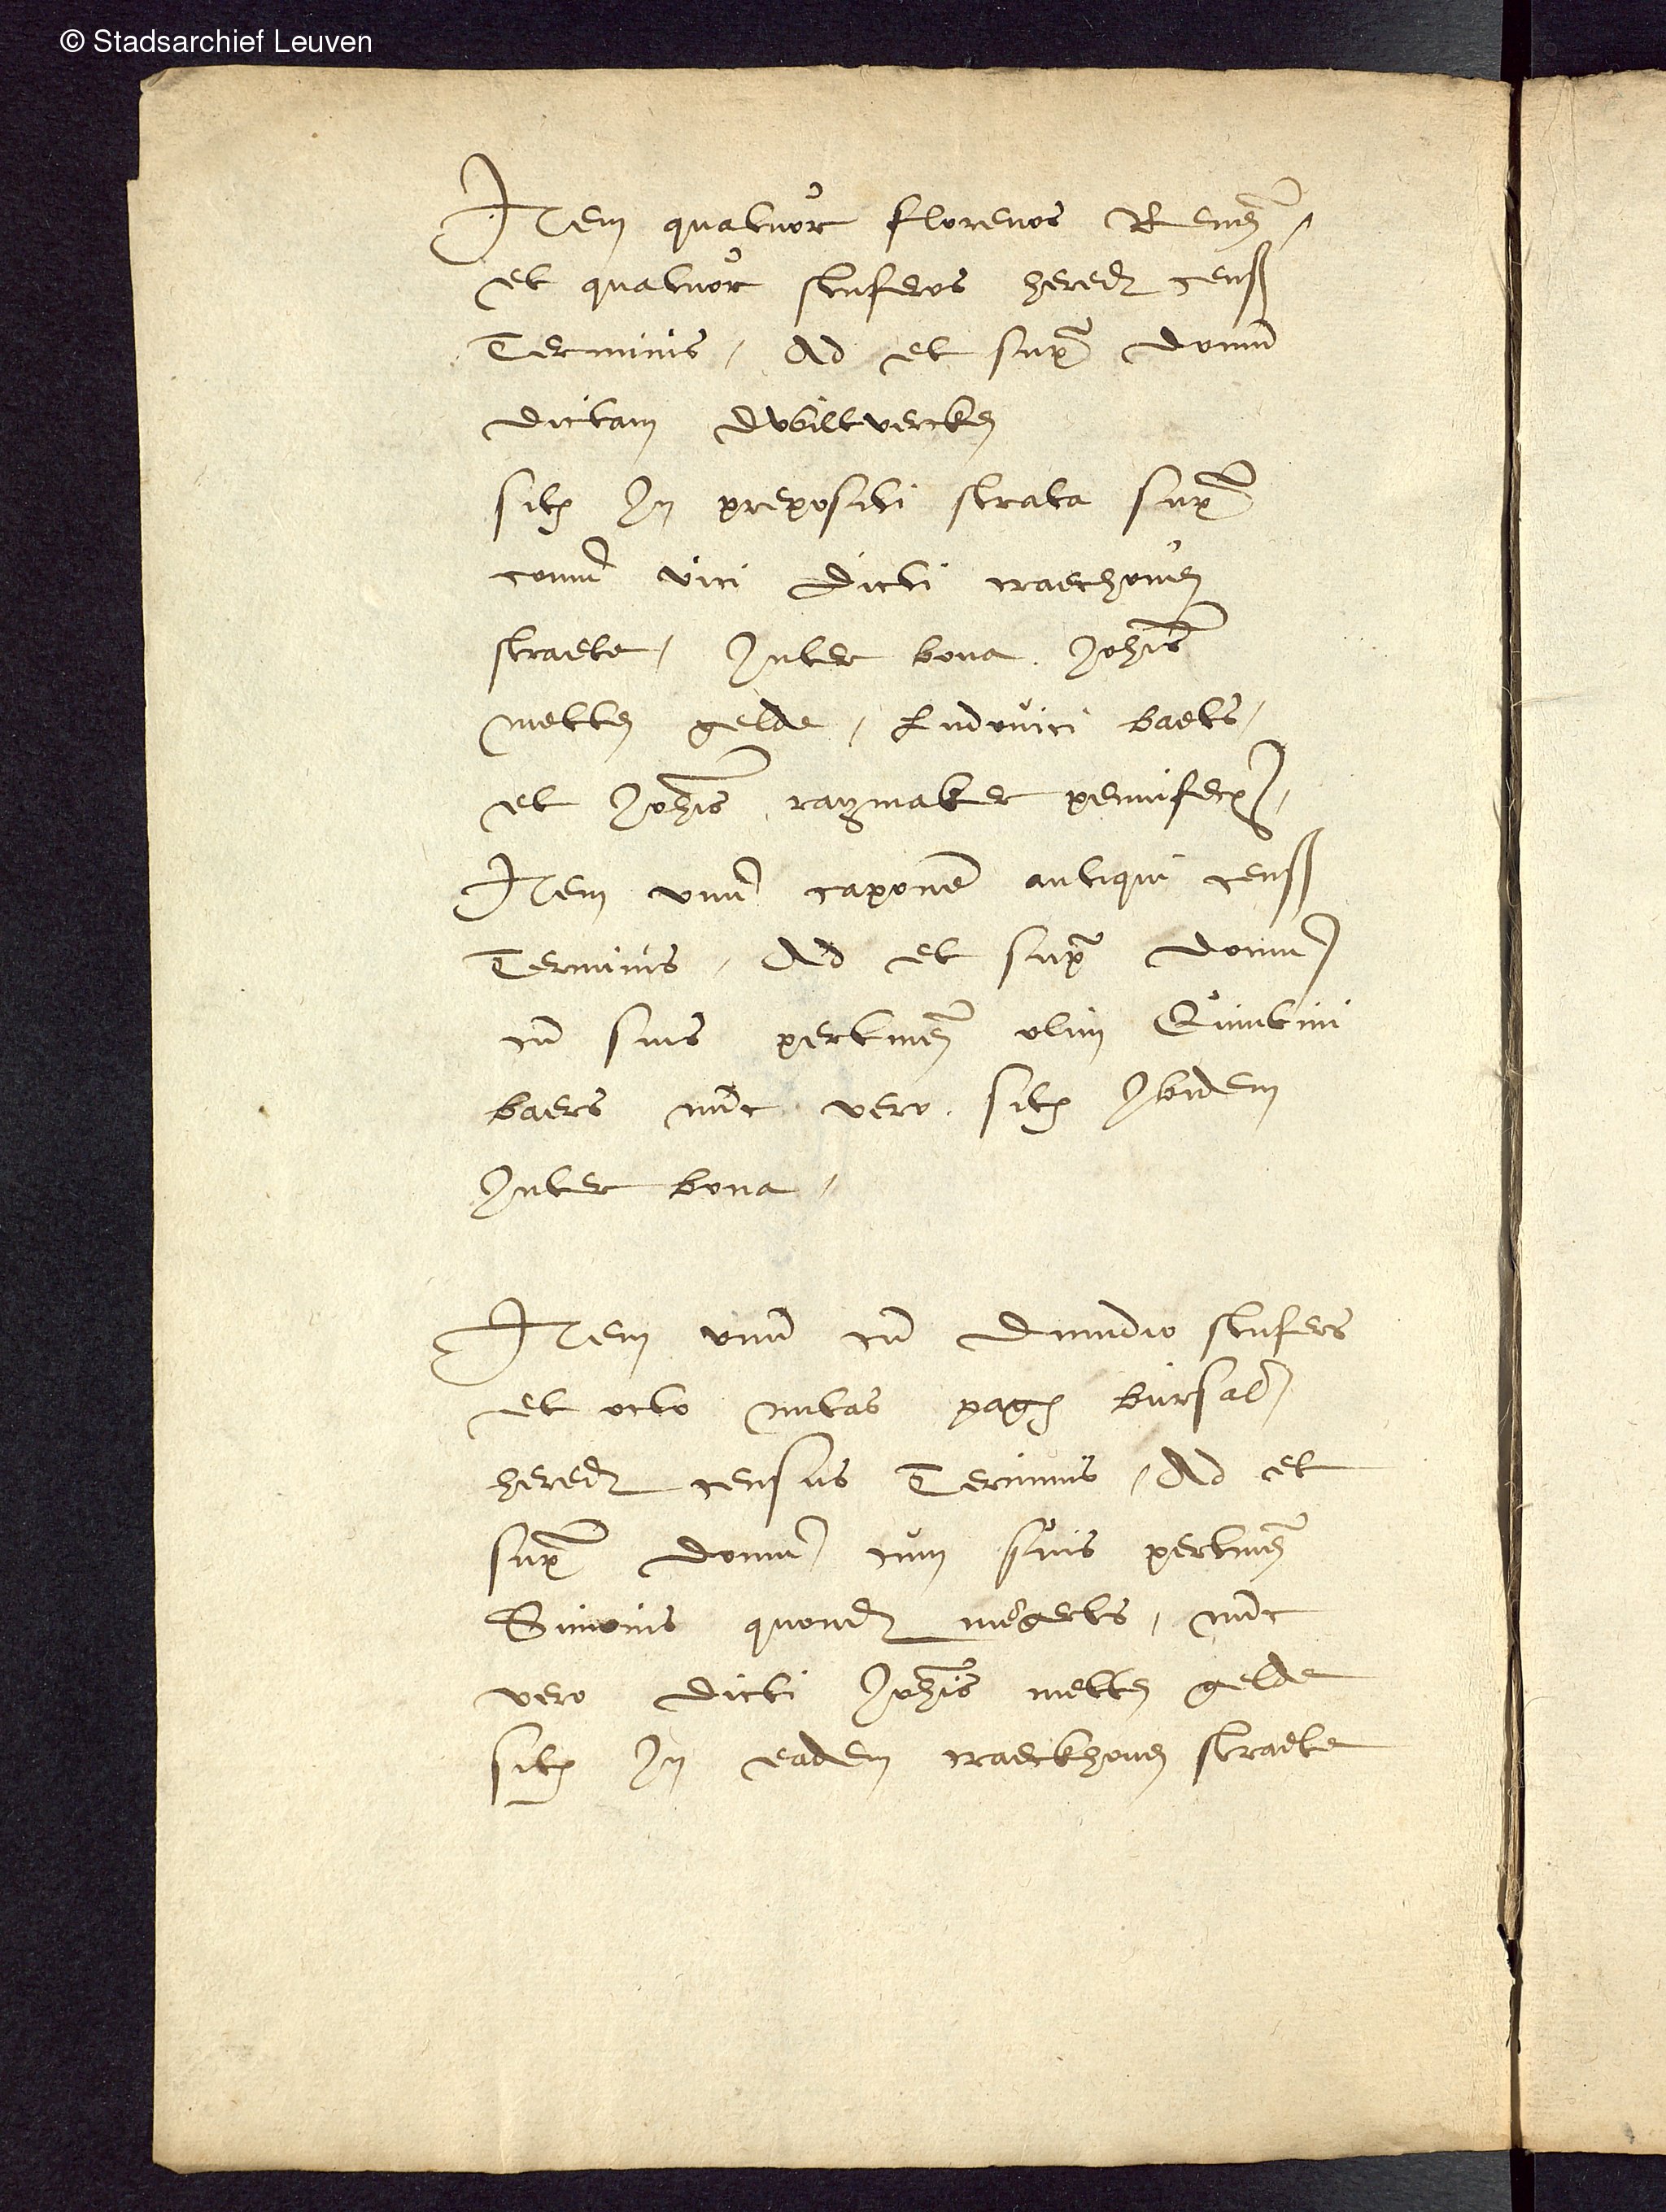 © Stadsarchief Leuven
Item quatuor florenos Renen
et quatuor stuferos hered cens
Terminis, Ad et supr domu
dictam dwiltvercken
sitā In prepositi strata supr
cornu vici dicti craechoven
straete, Inter bona Johis
metten gelde, Ludovici baets,
et Johis raymaker pennifecx,
Item unu capone antiqui cens
Terminis, Ad et supr domu
cu suis pertinen olim Quintini
baers nuc vero sitā Ibidem
Inter bona,
Item unu cu dimidio stufers
et octo mitas pagā bursal
hered census Terminis, Ad et
supr domu cum suis pertinen
Simonis quond megerts, nuc
vero dicti Johis metten gelde
sitā In eadem craeckhoven straete